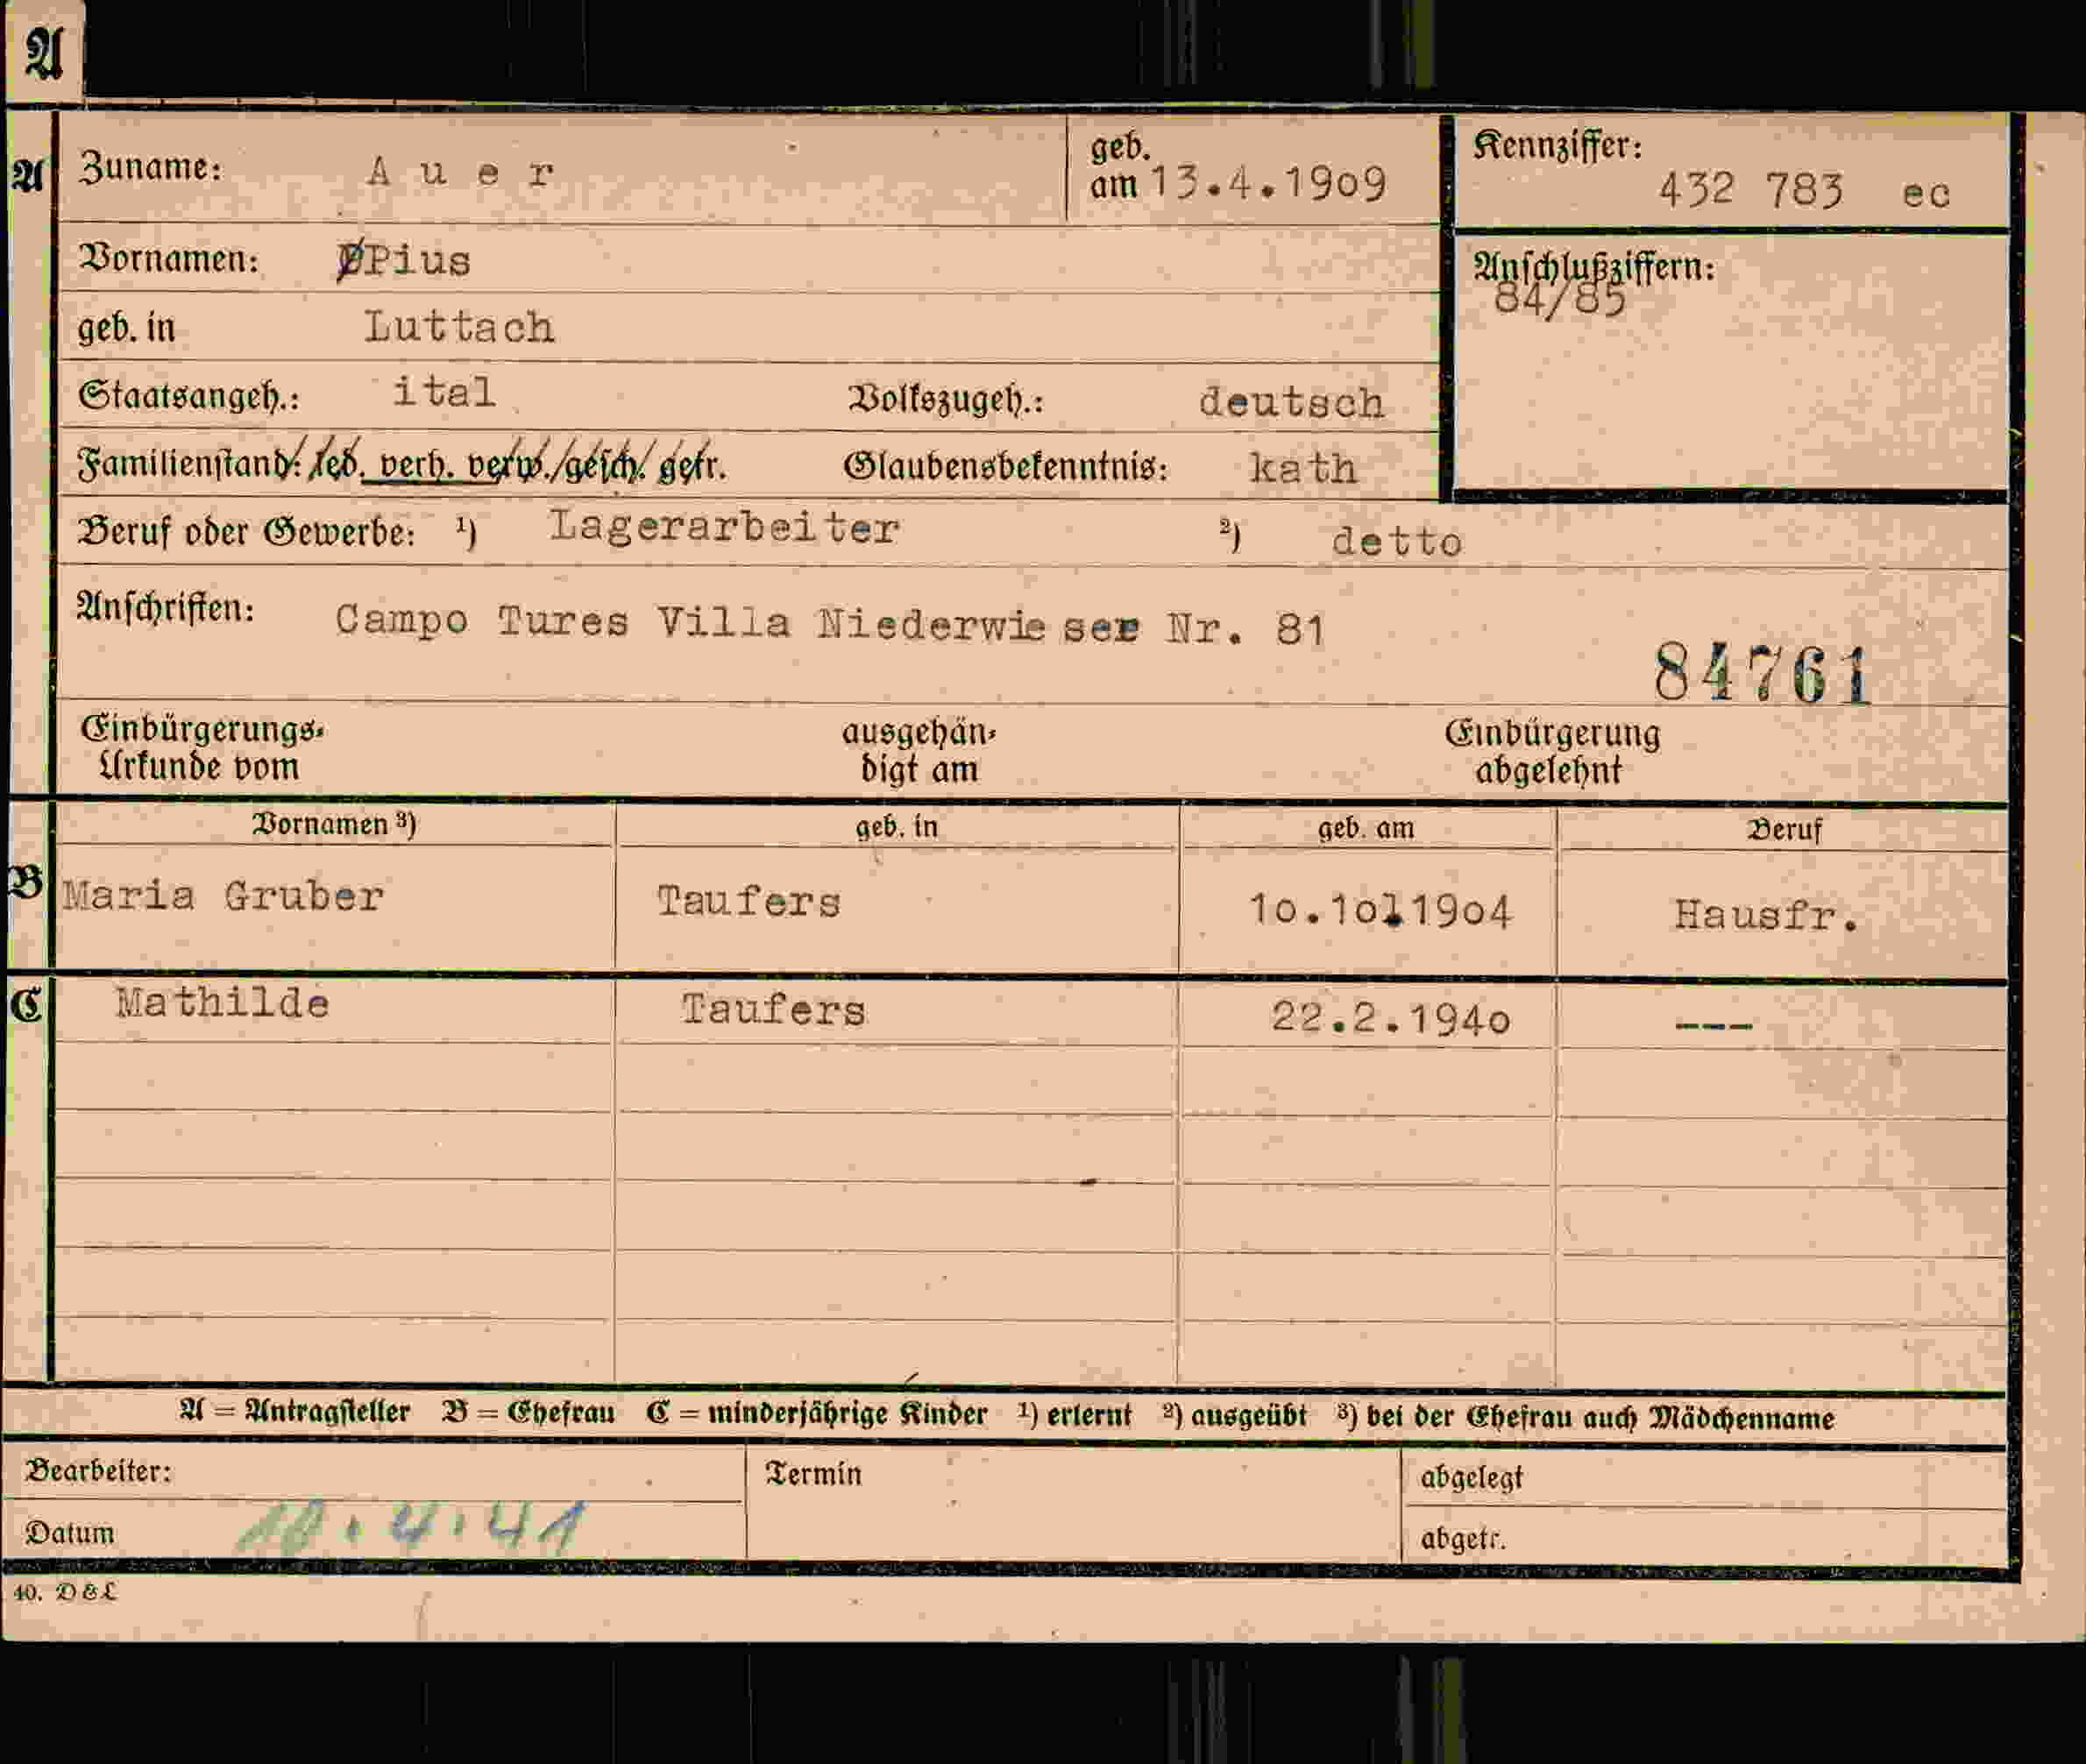 A
A Zuname: Auer geb. am 13.4.1909 Kennziffer: 432 783 ec
Vornamen: Pius Anschlußziffern: 84/85
geb. in Luttach
Staatsangeh.: ital Volkszugeh.: deutsch
Familienstand: led. verh. verw. gesch. getr. Glaubensbekenntnis: kath
Beruf oder Gewerbe: ¹) Lagerarbeiter ²) detto
Anschriften: Campo Tures Villa Niederwieser Nr. 81
84761
Einbürgerungs-Urkunde vom ausgehändigt am Einbürgerung abgelehnt
Vornamen ³) geb. in geb. am Beruf
B Maria Gruber Taufers 10.10.1904 Hausfr.
C Mathilde Taufers 22.2.1940 ---
A = Antragsteller B = Ehefrau C = minderjährige Kinder ¹) erlernt ²) ausgeübt ³) bei der Ehefrau auch Mädchenname
Bearbeiter: Termin abgelegt
Datum 10.4.41 abgetr.
40. D & L